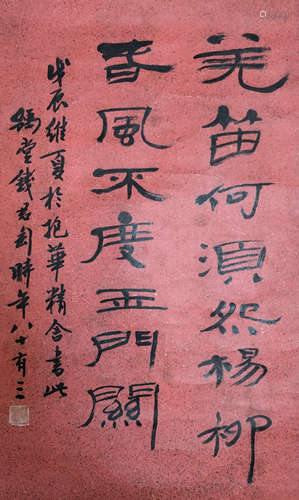 羌笛何須怨楊柳
春風不度玉門關
戊辰維夏於抱華精舍書此
錢君匋時年八十有三